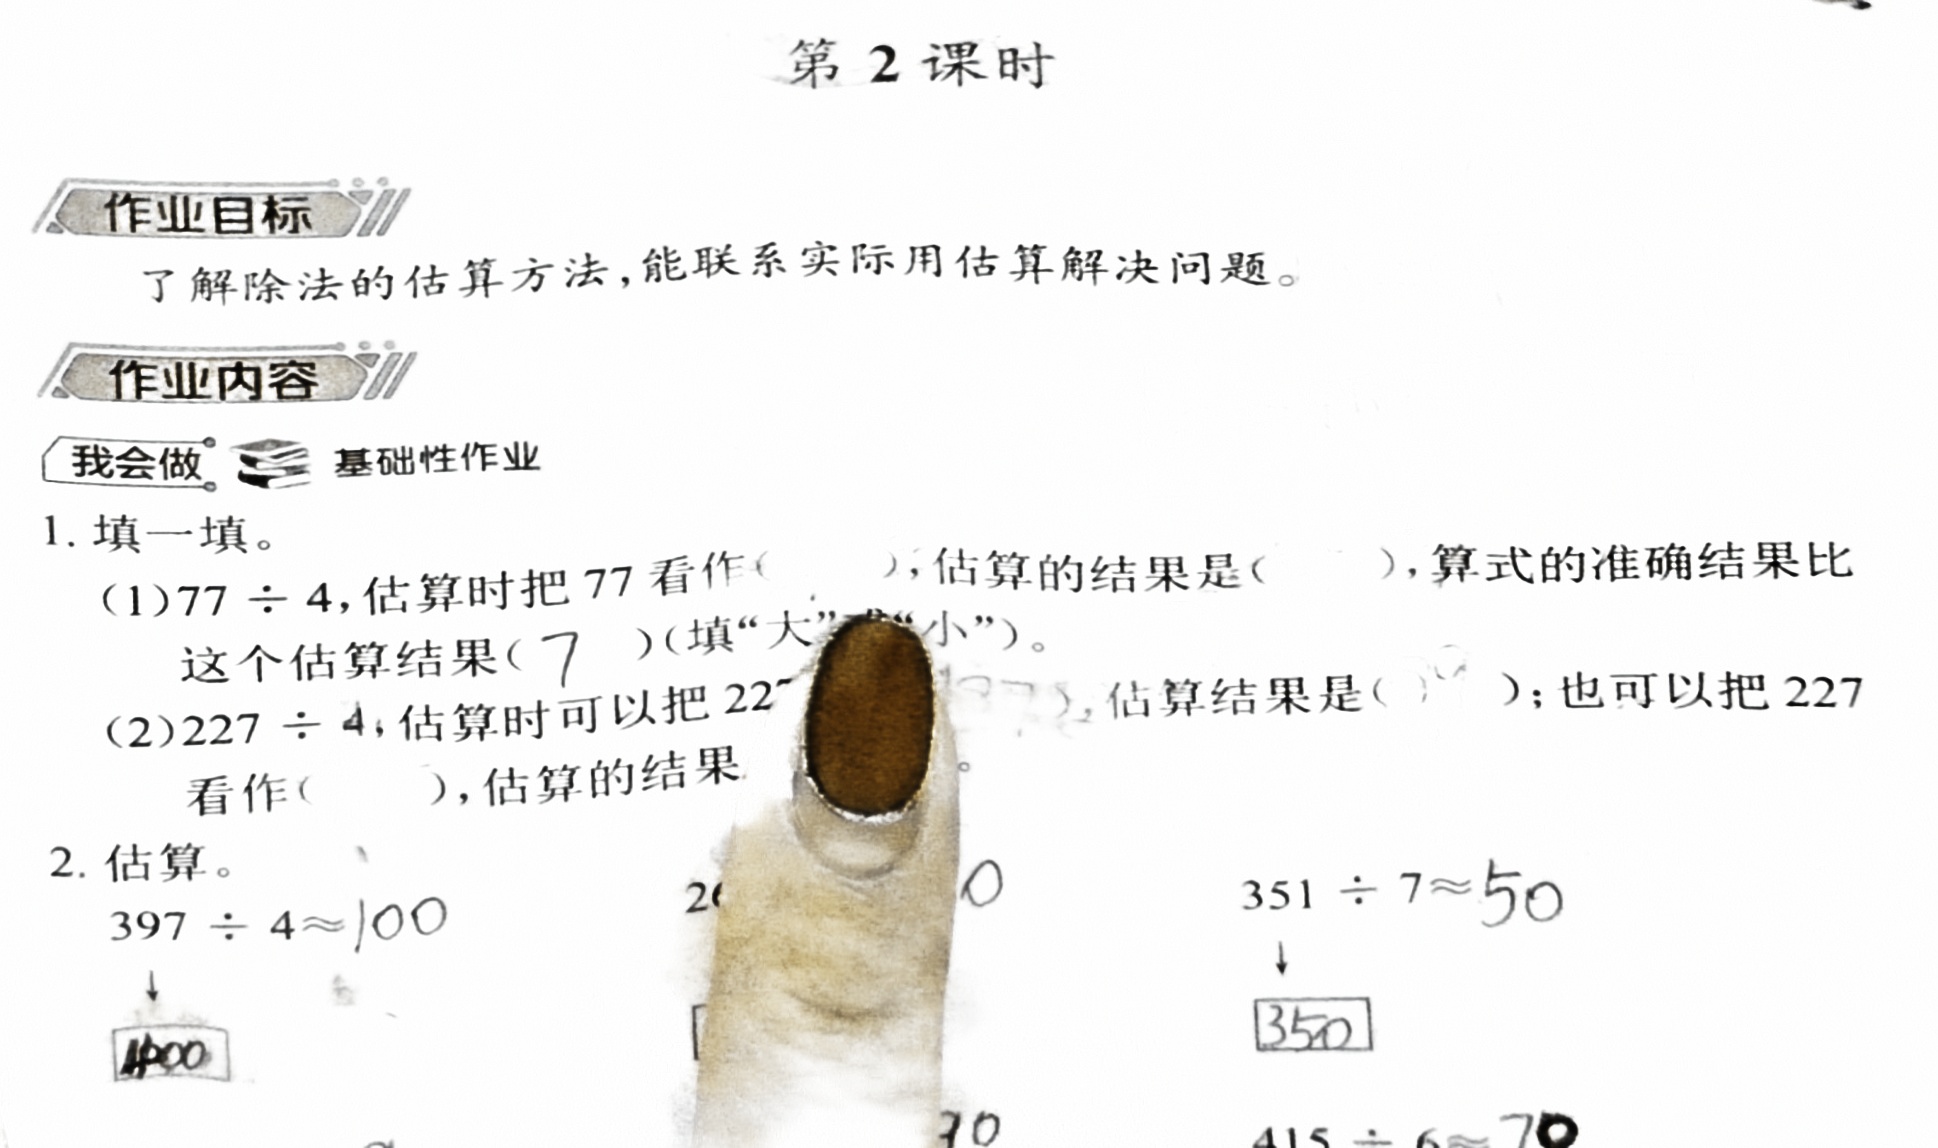 第 2 课时
作业目标
了解除法的估算方法,能联系实际用估算解决问题。
作业内容
我会做 基础性作业
1. 填一填。
(1)77 ÷ 4,估算时把 77 看作( ),估算的结果是( ),算式的准确结果比
这个估算结果( 7 )(填“大” “小”)。
(2)227 ÷ 4,估算时可以把 227 ),估算结果是( );也可以把 227
看作( ),估算的结果 。
2. 估算。
397 ÷ 4≈100 0 351 ÷ 7≈50
↓ ↓
400 350
90 415 ÷ 6≈70